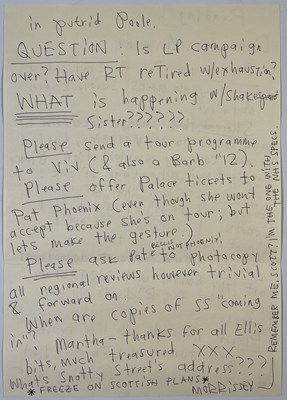 in putrid Poole.
QUESTION : Is LP campaign
over? Have RT reTired w/exhaustion?
WHAT is happening w/Shakespeares
Sister??????
Please send a tour programme
to Viv (& also a Barb "12).
Please offer Palace tickets to
Pat Phoenix (even though she won't
accept because she's on tour; but
let's make the gesture.)
ELLIS NOT PHOENIX!
Please ask Pat to photocopy
all regional reviews however trivial
& forward on.
When are copies of SS "coming
in"?
Martha - thanks for all Ellis
bits, much treasured XXX
Whats Snotty Street's address???
*FREEZE ON SCOTTISH PLANS*
MORRISSEY
REMEMBER ME, SCOTT? I'M THE ONE WITH
THE NHS SPECS.